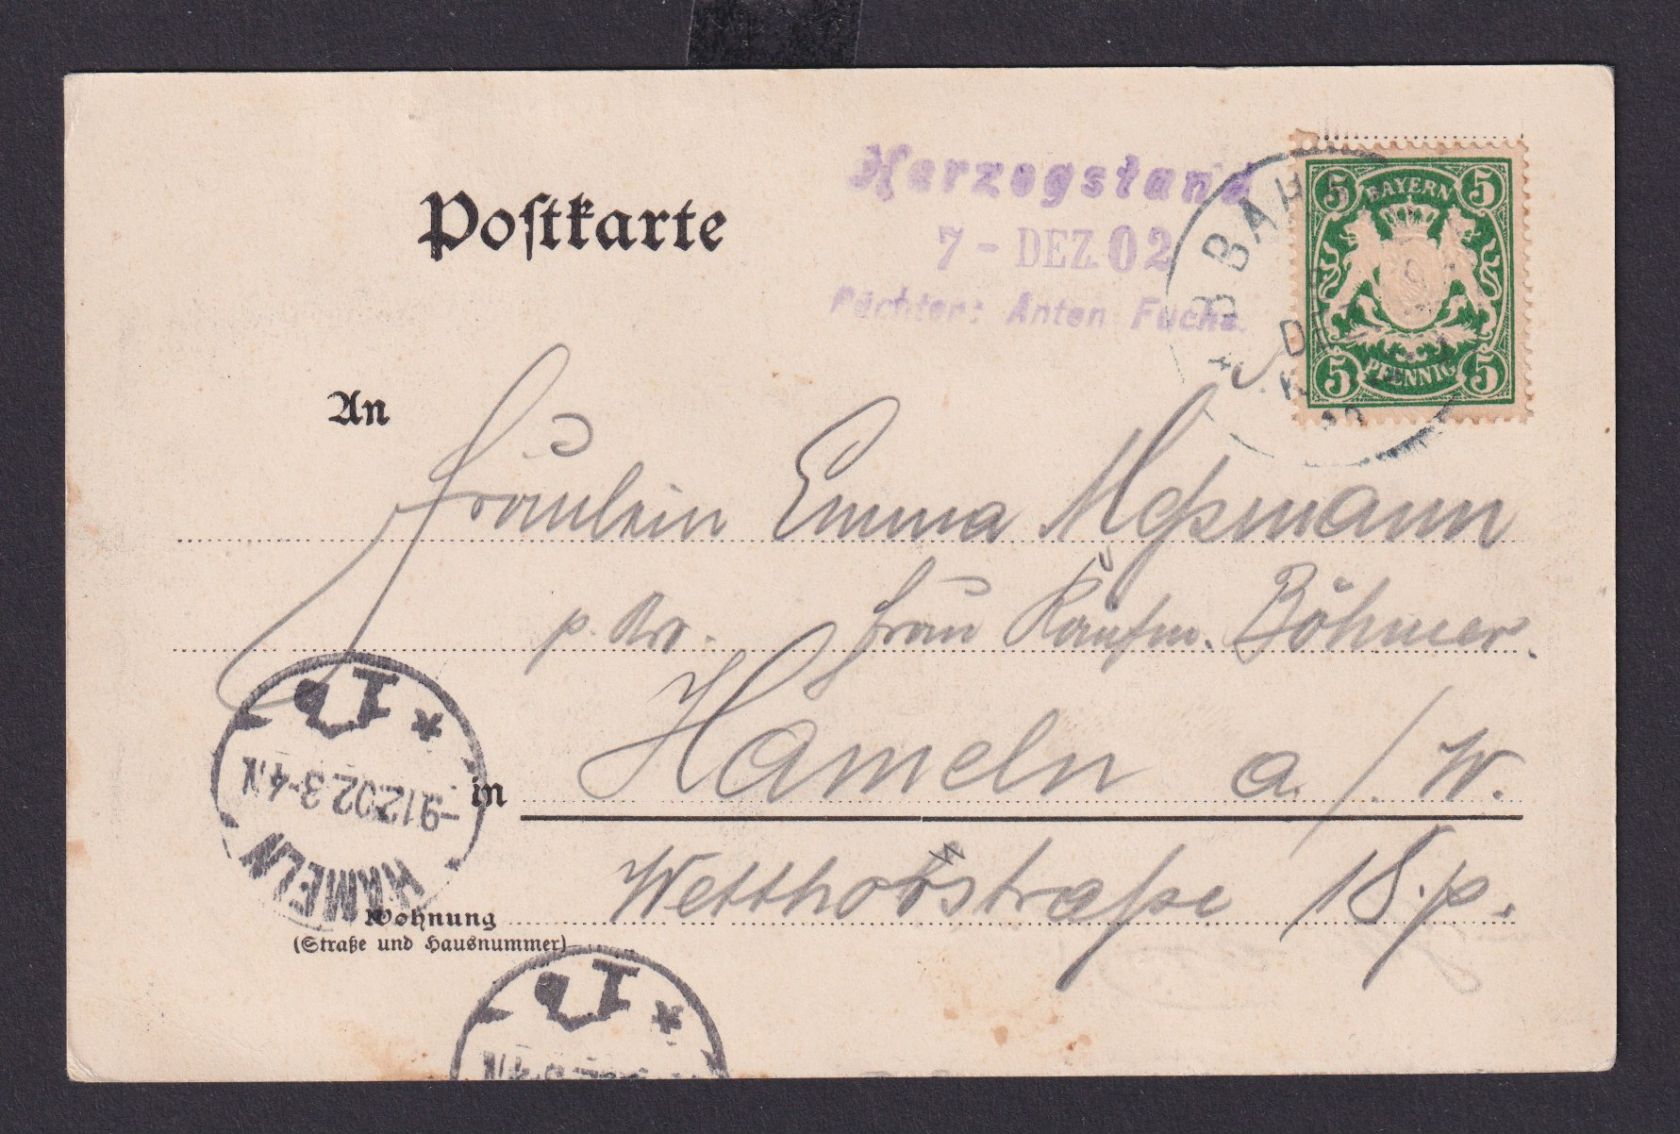 Postkarte
Herzogstand
7 - DEZ 02
Pächter: Anton Fuchs.
BAYERN
5 5
5 5
PFENNIG
BAHN
An
Fräulein Emma Meßmann
p. Adr. Frau Kaufm. Böhmer.
in Hameln a./W.
Wetthorstraße 18. p.
Wohnung
(Straße und Hausnummer)
HAMELN
-9.12.02.3-4N
* 1b
* 1b